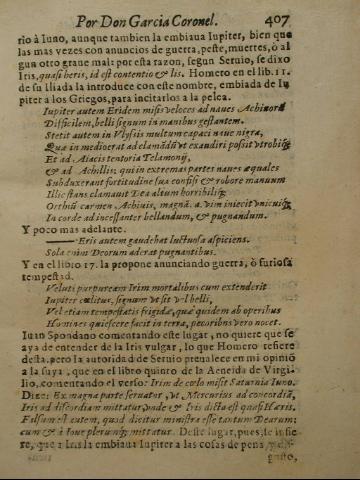 Por Don Garcia Coronel. 407
rio à Iuno, aunque tambien la embiaua Iupiter, bien que
las mas vezes con anuncios de guerra, peste, muertes, ò al
gun otro graue mal: por esta razon, segun Seruio, se dixo
Iris, quasi heris, id est contentio & lis. Homero en el lib. 11.
de su Iliada la introduce con este nombre, embiada de Iu
piter a los Griegos, para incitarlos a la pelea.
Iupiter autem Eridem misit veloces ad naues Achiuorū
Difficilem, belli signum in manibus gestantem.
Stetit autem in Vlyssis multum capaci naue nigra,
Quæ in medio erat ad clamādū vt exaudiri possit vtrobiq̃
Et ad Aiacis tentoria Telamonij,
& ad Achillis; qui in extremas partes naues æquales
Subduxerant fortitudine sua confisi & robore manuum
Illic stans clamauit Dea altum horribiliq̃
Orthiū carmen Achiuis, magnā. a. vim iniecit vnicuiq̃
In corde ad incessanter bellandum, & pugnandum.
Y poco mas adelante.
Eris autem gaudebat luctuosa aspiciens.
Sola enim Deorum aderat pugnantibus.
Y en el libro 17. la propone anunciando guerra, ò furiosa
tempestad.
Veluti purpuream Irim mortalibus cum extenderit
Iupiter cælitus, signum vt sit vel belli,
Vel etiam tempestatis frigidæ, quæ quidem ab operibus
Homines quiescere facit in terra, pecoribus vero nocet.
Iuan Spondano comentando este lugar, no quiere que se
aya de entender de la Iris vulgar, lo que Homero refiere
desta. pero la autoridad de Seruio preualece en mi opiniō
a la suya, que en el libro quinto de la Aeneida de Virgi-
lio, comentando el verso: Irim de cœlo misit Saturnia Iuno.
Dize: Ex magna parte seruatur, vt Mercurius ad concordiā,
Iris ad discordiam mittatur, vnde & Iris dicta est quasi Haeris.
Falsum est autem, quod dicitur ministra esse tantum Dearum:
cum & à Ioue plerunq̃ mittatur. Deste lugar, pues, se infie
re, que a Iris la embiaua Iupiter a las cosas de pena, y dis-
gusto,